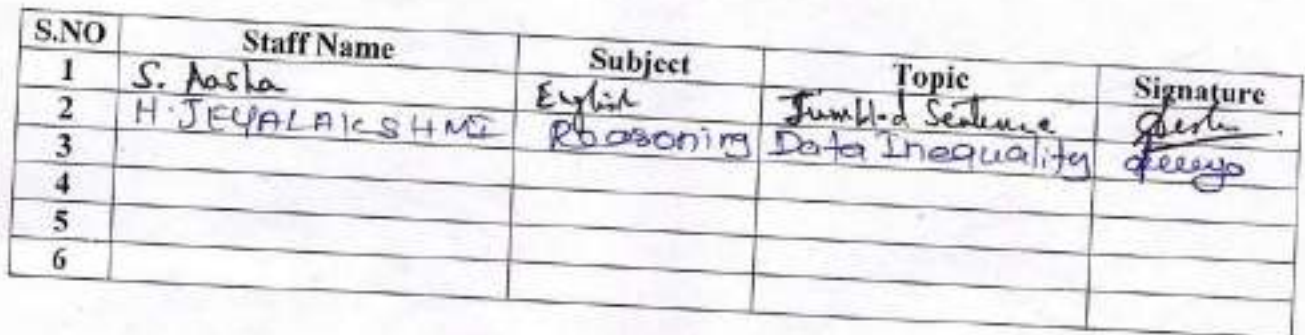 S.NO Staff Name Subject Topic Signature
1 S. Aasha English Jumbled Sentence
2 H.JEYALAKSHMI Reasoning Data Inequality
3
4
5
6